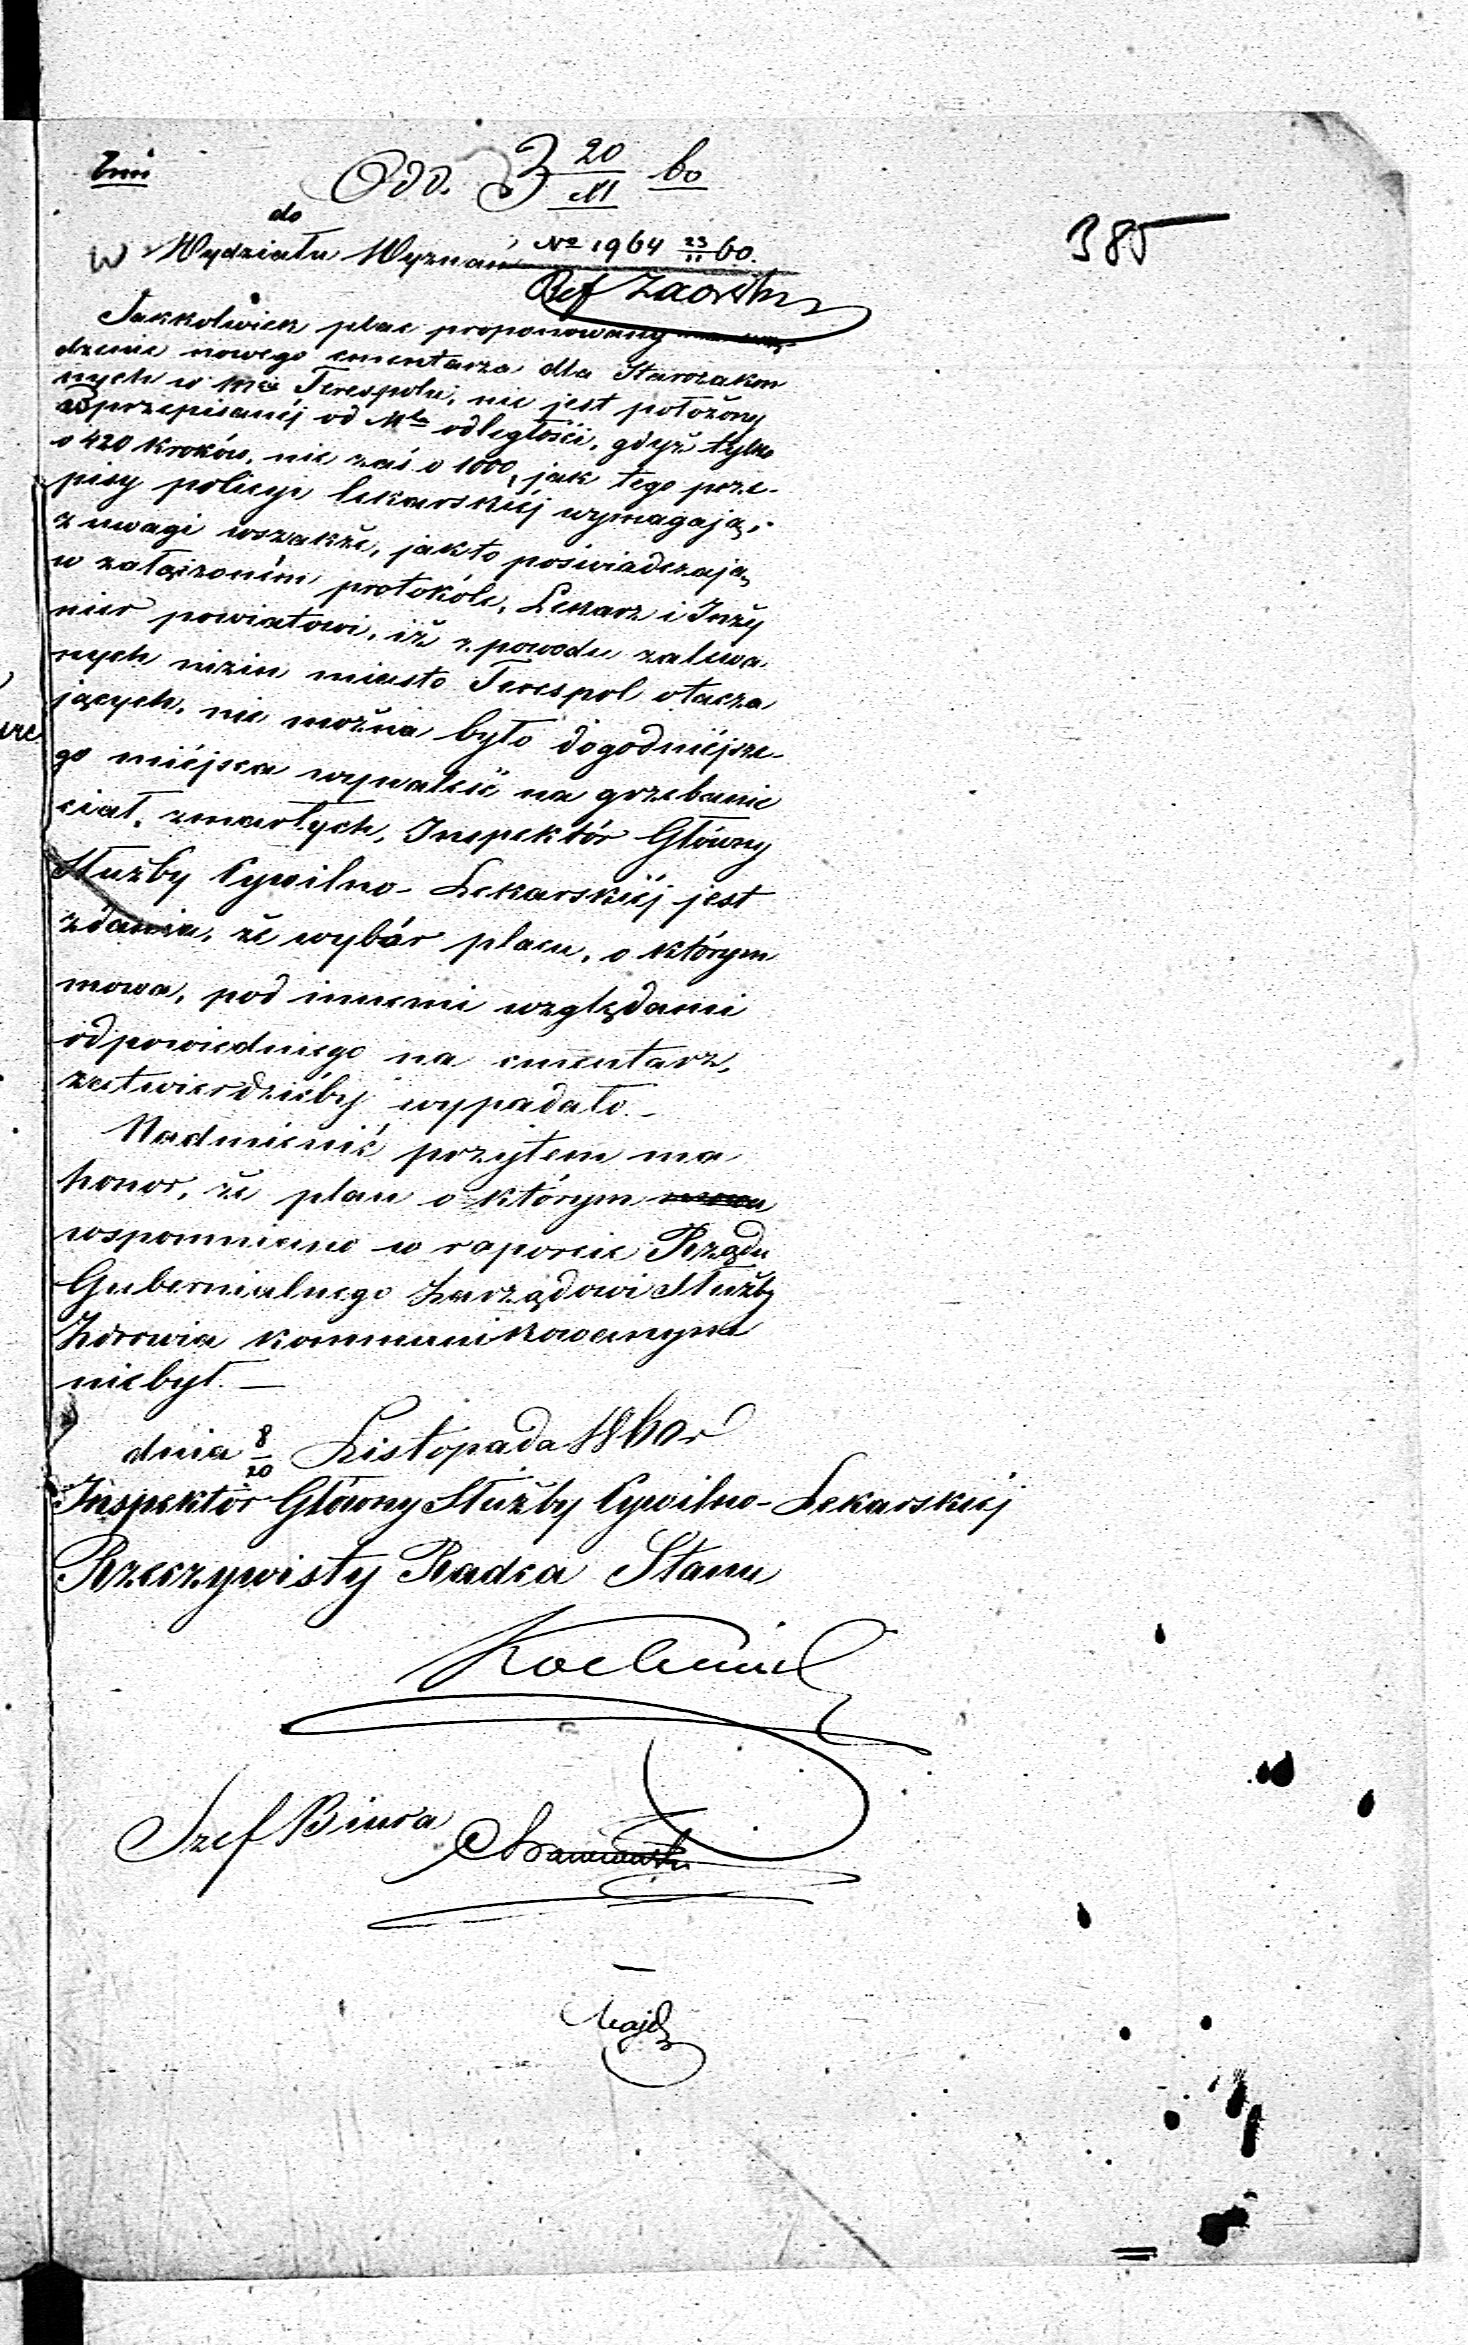 Odd. 3 20/XI 60
385
do
W Wydziału Wyznań No 1964 23/11 60.
Ref
Jakkolwiek plac proponowany na urzą-
dzenie nowego cmentarza dla Starozakon
nych w mie Terespolu, nie jest położony
w przepisanéj od Mta odległości, gdyż tylko
o 420 kroków, nie zaś o 1000, jak tego prze-
pisy policyi lekarskiéj wymagają,
z uwagi wszakże, jak to poświadczają
w załączoném protokóle, Lekarz i Inży
nier powiatowi, iż z powodu zalewa
nych nizin miasto Terespol otacza
jących, nie można było dogodniéjsze-
go miéjsca wynaleść na grzebanie
ciał zmarłych, Inspektór Główny
Służby Cywilno-Lekarskiéj jest
zdania, że wybór placu, o którym
mowa, pod innemi względami
odpowiedniego na cmentarz,
zatwierdzićby wypadało.-
Nadmienić przytem ma
honor, że plan o którym mowa
wspomniano w raporcie Rządu
Gubernialnego Zarządowi Służby
Zdrowia kommunikowanym
niebył. —
dnia 8/20 Listopada 1860 r
Inspektór Główny Służby Cywilno-Lekarskiéj
Rzeczywisty Radca Stanu
Szef Biura